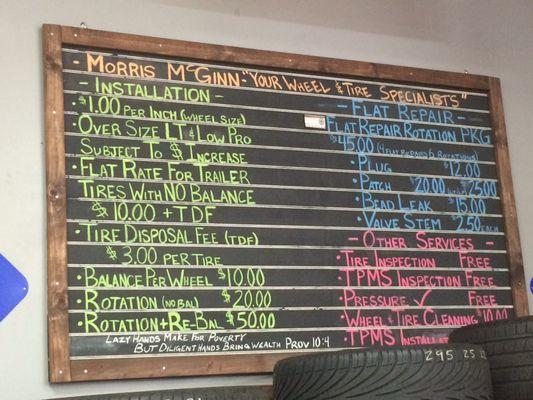 - Morris McGinn - "Your Wheel & Tire Specialists"
- Installation -
• $1.00 per inch (wheel size)
• Over Size LT & Low Pro
Subject To $ Increase
• Flat Rate For Trailer
Tires With NO Balance
$10.00 + TDF
• Tire Disposal Fee (TDF)
$3.00 per tire
• Balance Per Wheel $10.00
• Rotation (no bal) $20.00
• Rotation + Re-Bal $50.00
Lazy Hands Make For Poverty
But Diligent Hands Bring Wealth Prov 10:4
- Flat Repair -
Flat Repair Rotation PKG
$45.00
• Plug $12.00
• Patch $20.00 $25.00
• Bead Leak $15.00
• Valve Stem $2.50 each
- Other Services -
• Tire Inspection Free
TPMS Inspection Free
• Pressure ✓ Free
• Wheel Tire Cleaning $10.00
• TPMS
295 25